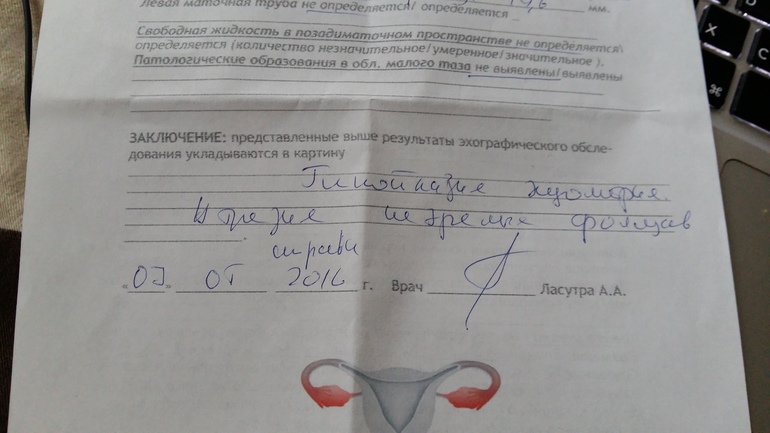 Левая маточная труба не определяется/ определяется мм.
Свободная жидкость в позадиматочном пространстве не определяется\
определяется (количество незначительное/умеренное/значительное ).
Патологические образования в обл. малого таза не выявлены/выявлены
ЗАКЛЮЧЕНИЕ: представленные выше результаты эхографического обсле-
дования укладываются в картину
справа
2016 г. Врач Ласутра А.А.
X
⌘